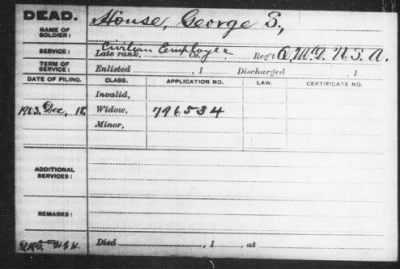 DEAD.
NAME OF SOLDIER: House, George S,
SERVICE: Civilian Employee
Late rank, Co. , Reg't Q.M.D. U.S.A.
TERM OF SERVICE: Enlisted , 1 Discharged , 1
DATE OF FILING. CLASS. APPLICATION NO. LAW. CERTIFICATE NO.
Invalid,
1903. Dec, 15 Widow, 796534
Minor,
ADDITIONAL SERVICES:
REMARKS:
Died , 1 , at